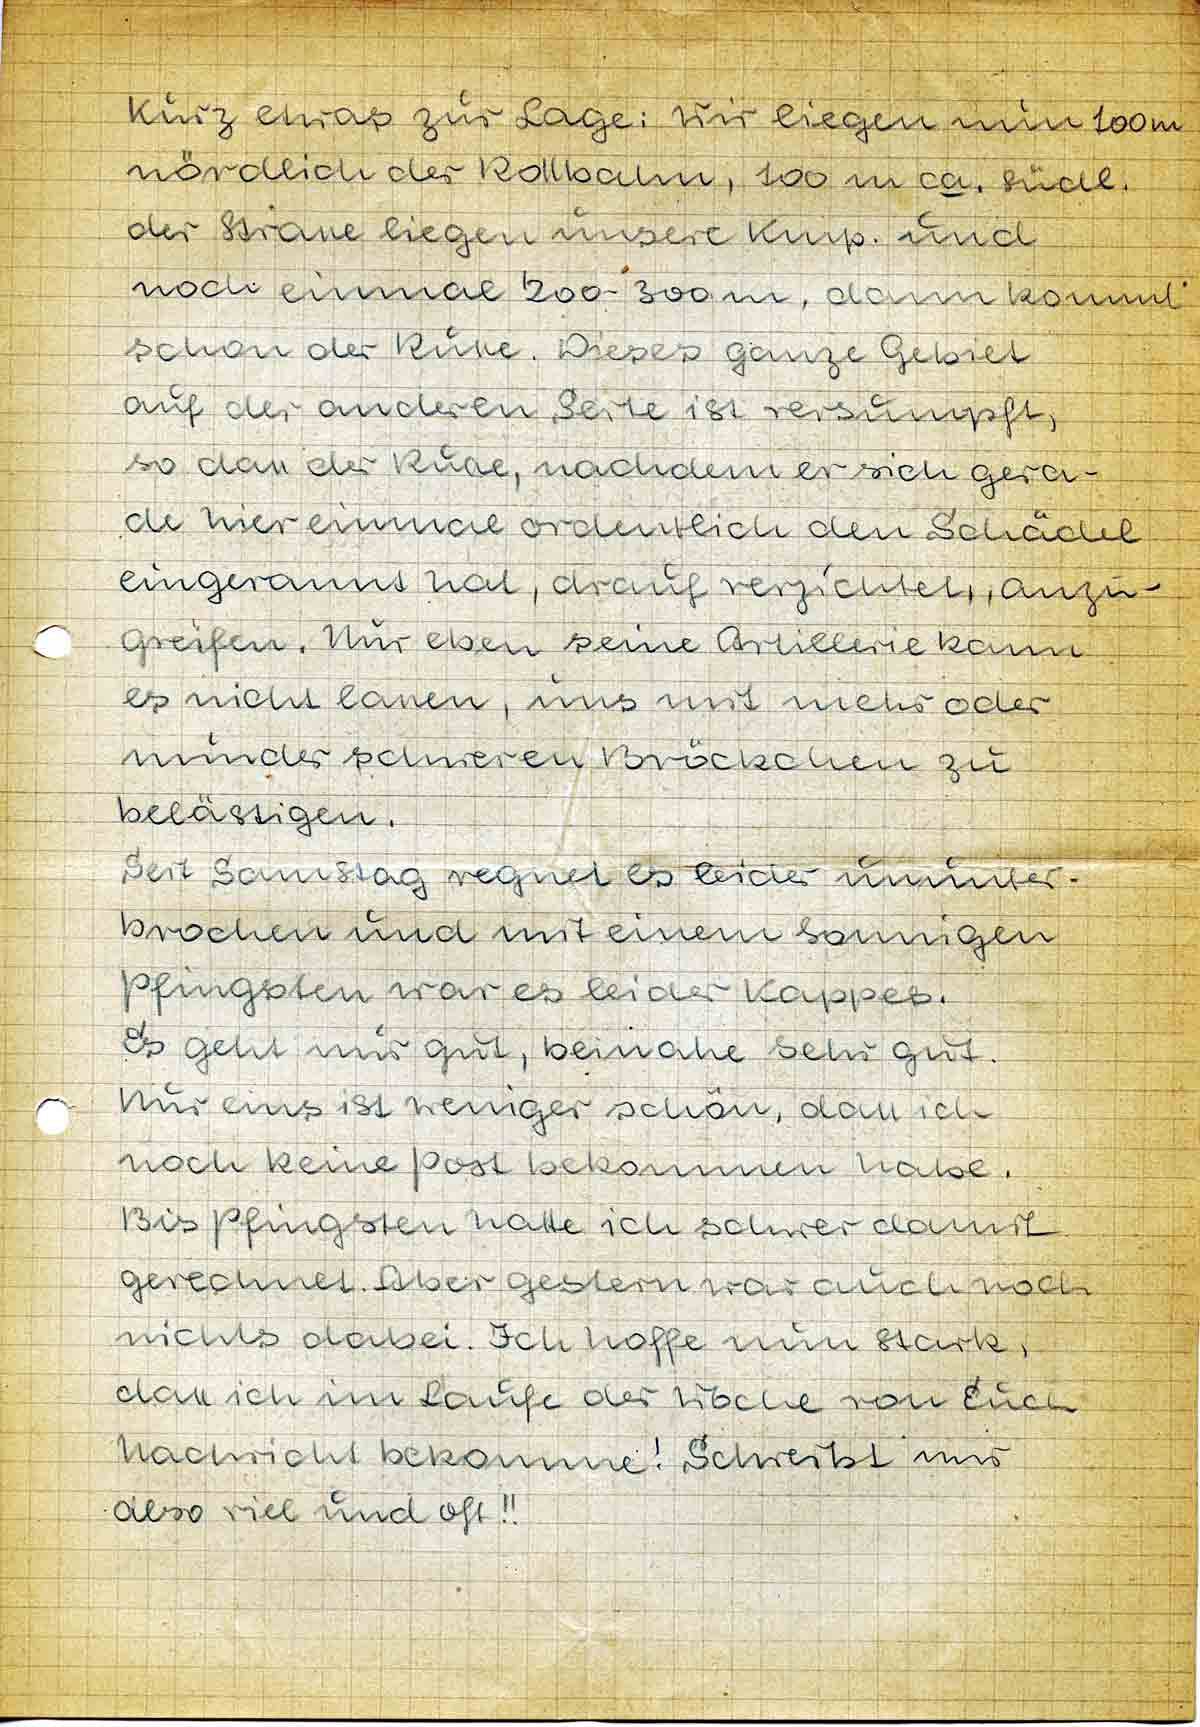 Kurz etwas zur Lage: Wir liegen nun 100 m
nördlich der Rollbahn, 100 m ca. südl.
der Strasse liegen unsere Kmp. und
noch einmal 200-300 m, dann kommt
schon der Russe. Dieses ganze Gebiet
auf der anderen Seite ist versumpft,
so dass der Russe, nachdem er sich gera-
de hier einmal ordentlich den Schädel
eingerannt hat, drauf verzichtet, anzu-
greifen. Nur eben seine Artillerie kann
es nicht lassen, uns mit mehr oder
minder schweren Bröckchen zu
belästigen.
Seit Samstag regnet es leider ununter-
brochen und mit einem sonnigen
Pfingsten war es leider Kappes.
Es geht mir gut, beinahe sehr gut.
Nur eins ist weniger schön, dass ich
noch keine Post bekommen habe.
Bis Pfingsten hatte ich schwer damit
gerechnet. Aber gestern war auch noch
nichts dabei. Ich hoffe nun stark,
dass ich im Laufe der Woche von Euch
Nachricht bekomme! Schreibt mir
also viel und oft!!